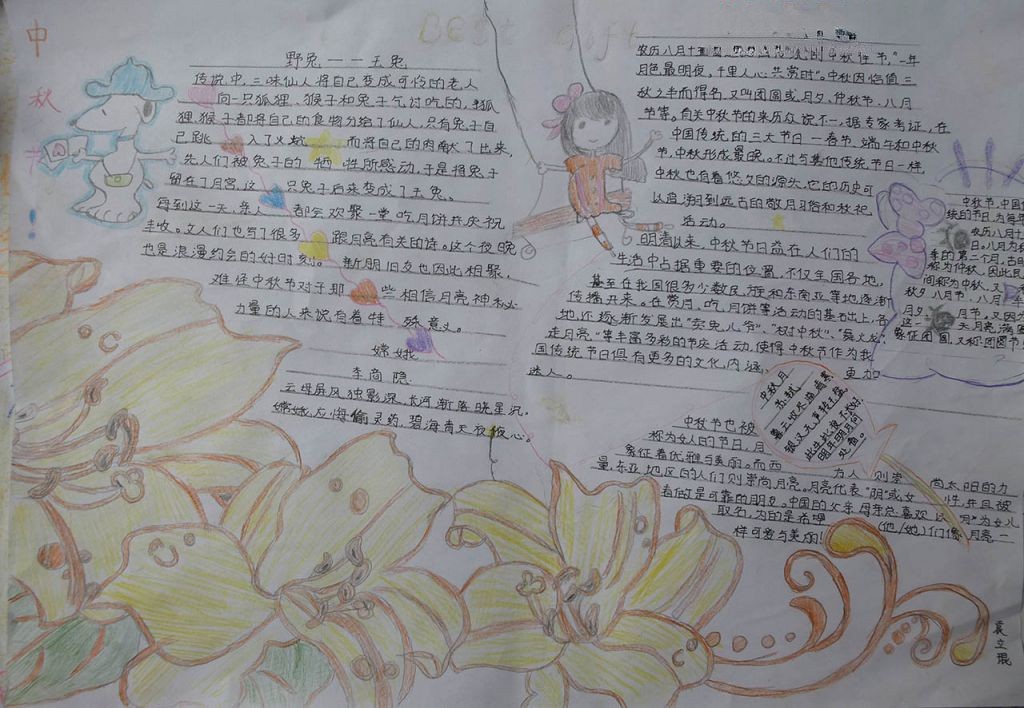 中
秋
!
Best gift
野兔——玉兔
传说中,三味仙人将自己变成可怜的老人
向一只狐狸、猴子和兔子乞讨吃的,狐
狸、猴子都将自己的食物分给了仙人,只有兔子自
己跳入了火 而将自己的肉献了出来,
先人们被兔子的牺牲所感动,于是将兔子
留在了月宫,这只兔子后来变成了玉兔。
每到这一天,亲人都会欢聚一堂吃月饼并庆祝
丰收。文人们也写了很多跟月亮有关的诗。这个夜晚
也是浪漫约会的好时刻。新朋旧友也因此相聚,
难怪中秋节对于那些相信月亮神秘
力量的人来说有着特殊意义。
嫦娥
李商隐
云母屏风独影深,长河渐落晓星沉。
嫦娥应悔偷灵药,碧海青天夜夜心。
农历八月十 中秋佳节,"一年
月色最明夜,千里人心共赏时"。中秋因恰值三
秋之半而得名,又叫团圆或月夕、仲秋节、八月
节等。有关中秋节的来历众说不一,据专家考证,在
中国传统的三大节日—春节、端午和中秋
节,中秋形成最晚。不过与其他传统节日一样
中秋也有着悠久的源头,它的历史可
以追溯到远古的敬月习俗和秋祀
活动。
明清以来,中秋节日益在人们的
生活中占据重要的位置,不仅全国各地,
甚至在我国很多少数民族和东南亚等地逐渐
传播开来。在赏月、吃月饼等活动的基础上,各
地还逐渐发展出"卖兔儿爷"、"树中秋"、"舞火龙"、
"走月亮"等丰富多彩的节庆活动,使得中秋节作为我
国传统节日俱有更多的文化内涵,更加
迷人。
中秋节,中国
统的节日,为每年
农历八月十
日。八月为秋
季的第二个月,古时
称为仲秋,因此民
间称为中秋,又
秋夕、八月节、八月半、
月夕、月节,又因为
这一天月亮满圆
象征团圆,又称团圆节
中秋月
苏轼
暮云收尽溢清寒
银汉无声转玉盘
此生此夜不长好,
明月明年何
处看。
中秋节也被
称为女人的节日,月
象征着优雅与美丽。而西方人则崇尚太阳的力
量,东亚地区的人们则崇尚月亮。月亮代表"阴"或女性,并且被
看做是可靠的朋友。中国的父亲母亲总喜欢以"月"为女儿
取名,为的是希望(他/她)们像月亮一
样可爱与美丽!
袁立琨